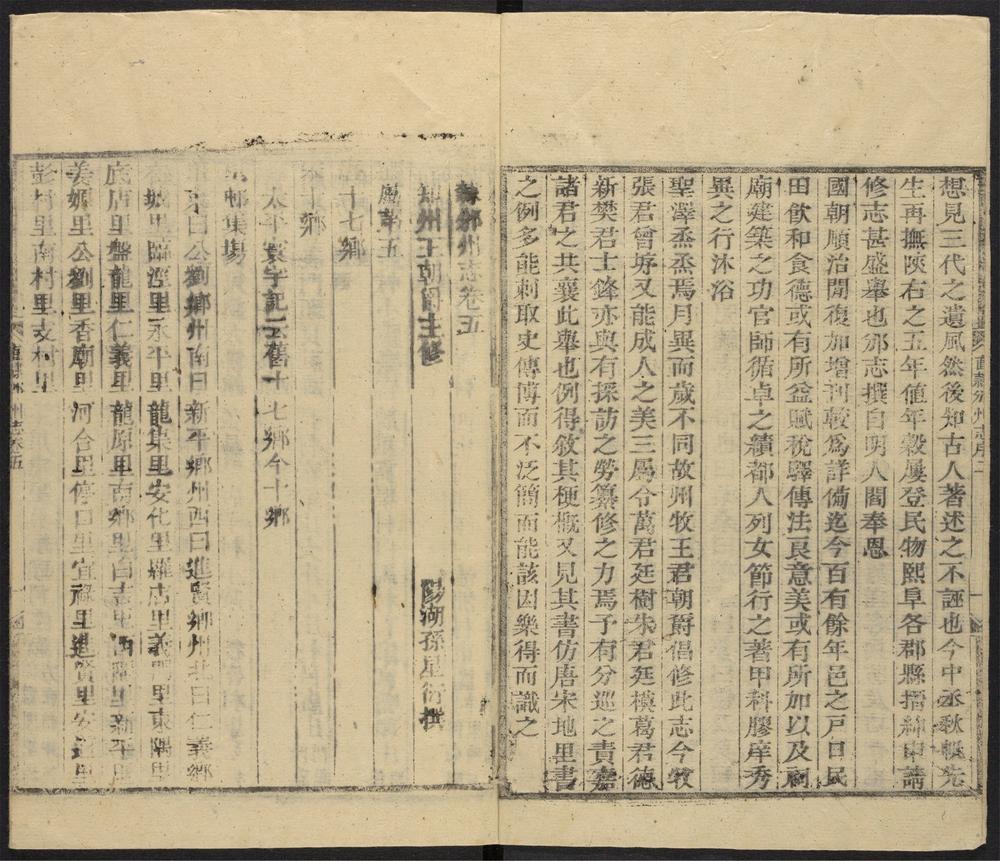 想見三代之遺風然後知古人著述之不誣也今中丞秋帆先
生再撫陝右之五年值年穀屢登民物熙阜各郡縣搢紳申請
修志甚盛舉也邠志撰自明人閻奉恩
國朝順治閒復加增刊較爲詳備迄今百有餘年邑之戸口民
田飲和食德或有所益賦稅驛傳法良意美或有所加以及祠
廟建築之功官師循卓之績都人列女節行之著甲科膠庠秀
異之行沐浴
聖澤烝烝焉月異而歲不同故州牧王君朝爵倡修此志今牧
張君曾垿又能成人之美三屬令萬君廷樹朱君廷模葛君德
新樊君士鋒亦與有採訪之勞纂修之力焉予有分巡之責嘉
諸君之共襄此舉也例得敘其梗概又見其書仿唐宋地里書
之例多能刺取史傳博而不泛簡而能該因樂得而識之
直隸邠州志序二
直隸邠州志卷五
知州王朝爵主修
陽湖孫星衍撰
屬第五
十七鄉
太平寰宇記云舊十七鄉今十鄉
十鄉
邨集場
曰公劉鄉州南曰新平鄉州西曰進賢鄉州北曰仁義鄉
里臨涇里永平里龍集里安化里羅店里義門里東隅里
底店里盤龍里仁義里龍原里南鄉里白吉里西隅里新平里
姜嫄里公劉里香廟里河台里停口里宜祿里進賢里安
彭村里南村里
直隸邠州志卷五